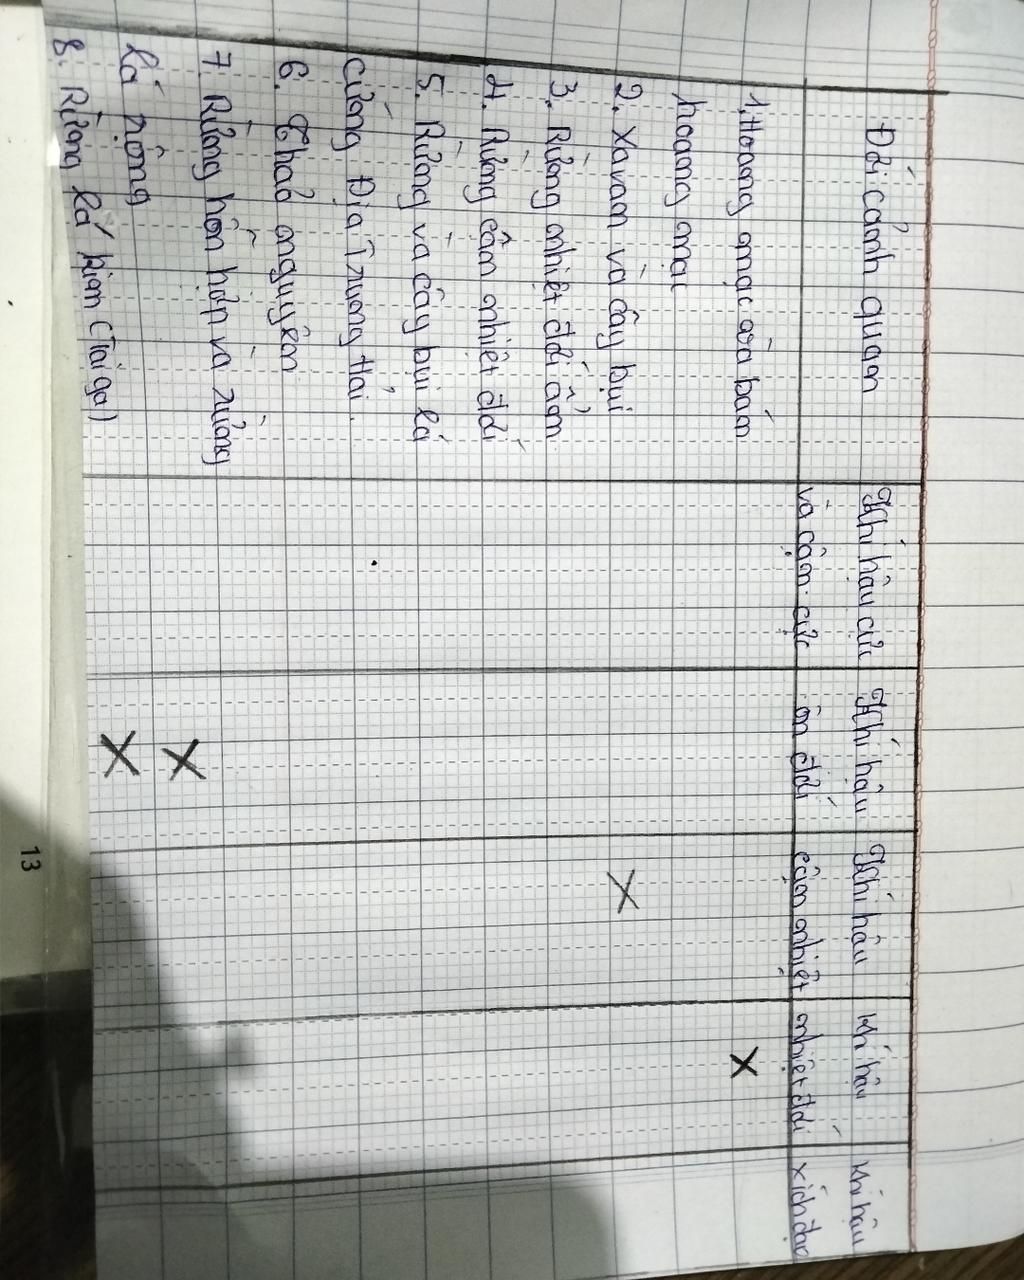 Đới cảnh quan
Khí hậu cực
và cận cực
Khí hậu
ôn đới
Khí hậu
cận nhiệt
Khí hậu
nhiệt đới
Khí hậu
xích đạo
1. Hoang mạc và bán
hoang mạc
X
2. Xavan và cây bụi
X
3. Rừng nhiệt đới ẩm
4. Rừng cận nhiệt đới
5. Rừng và cây bụi lá
cứng Địa Trung Hải.
6. Thảo nguyên
7. Rừng hỗn hợp và rừng
lá rộng
X
8. Rừng lá kim (Taiga)
X
13